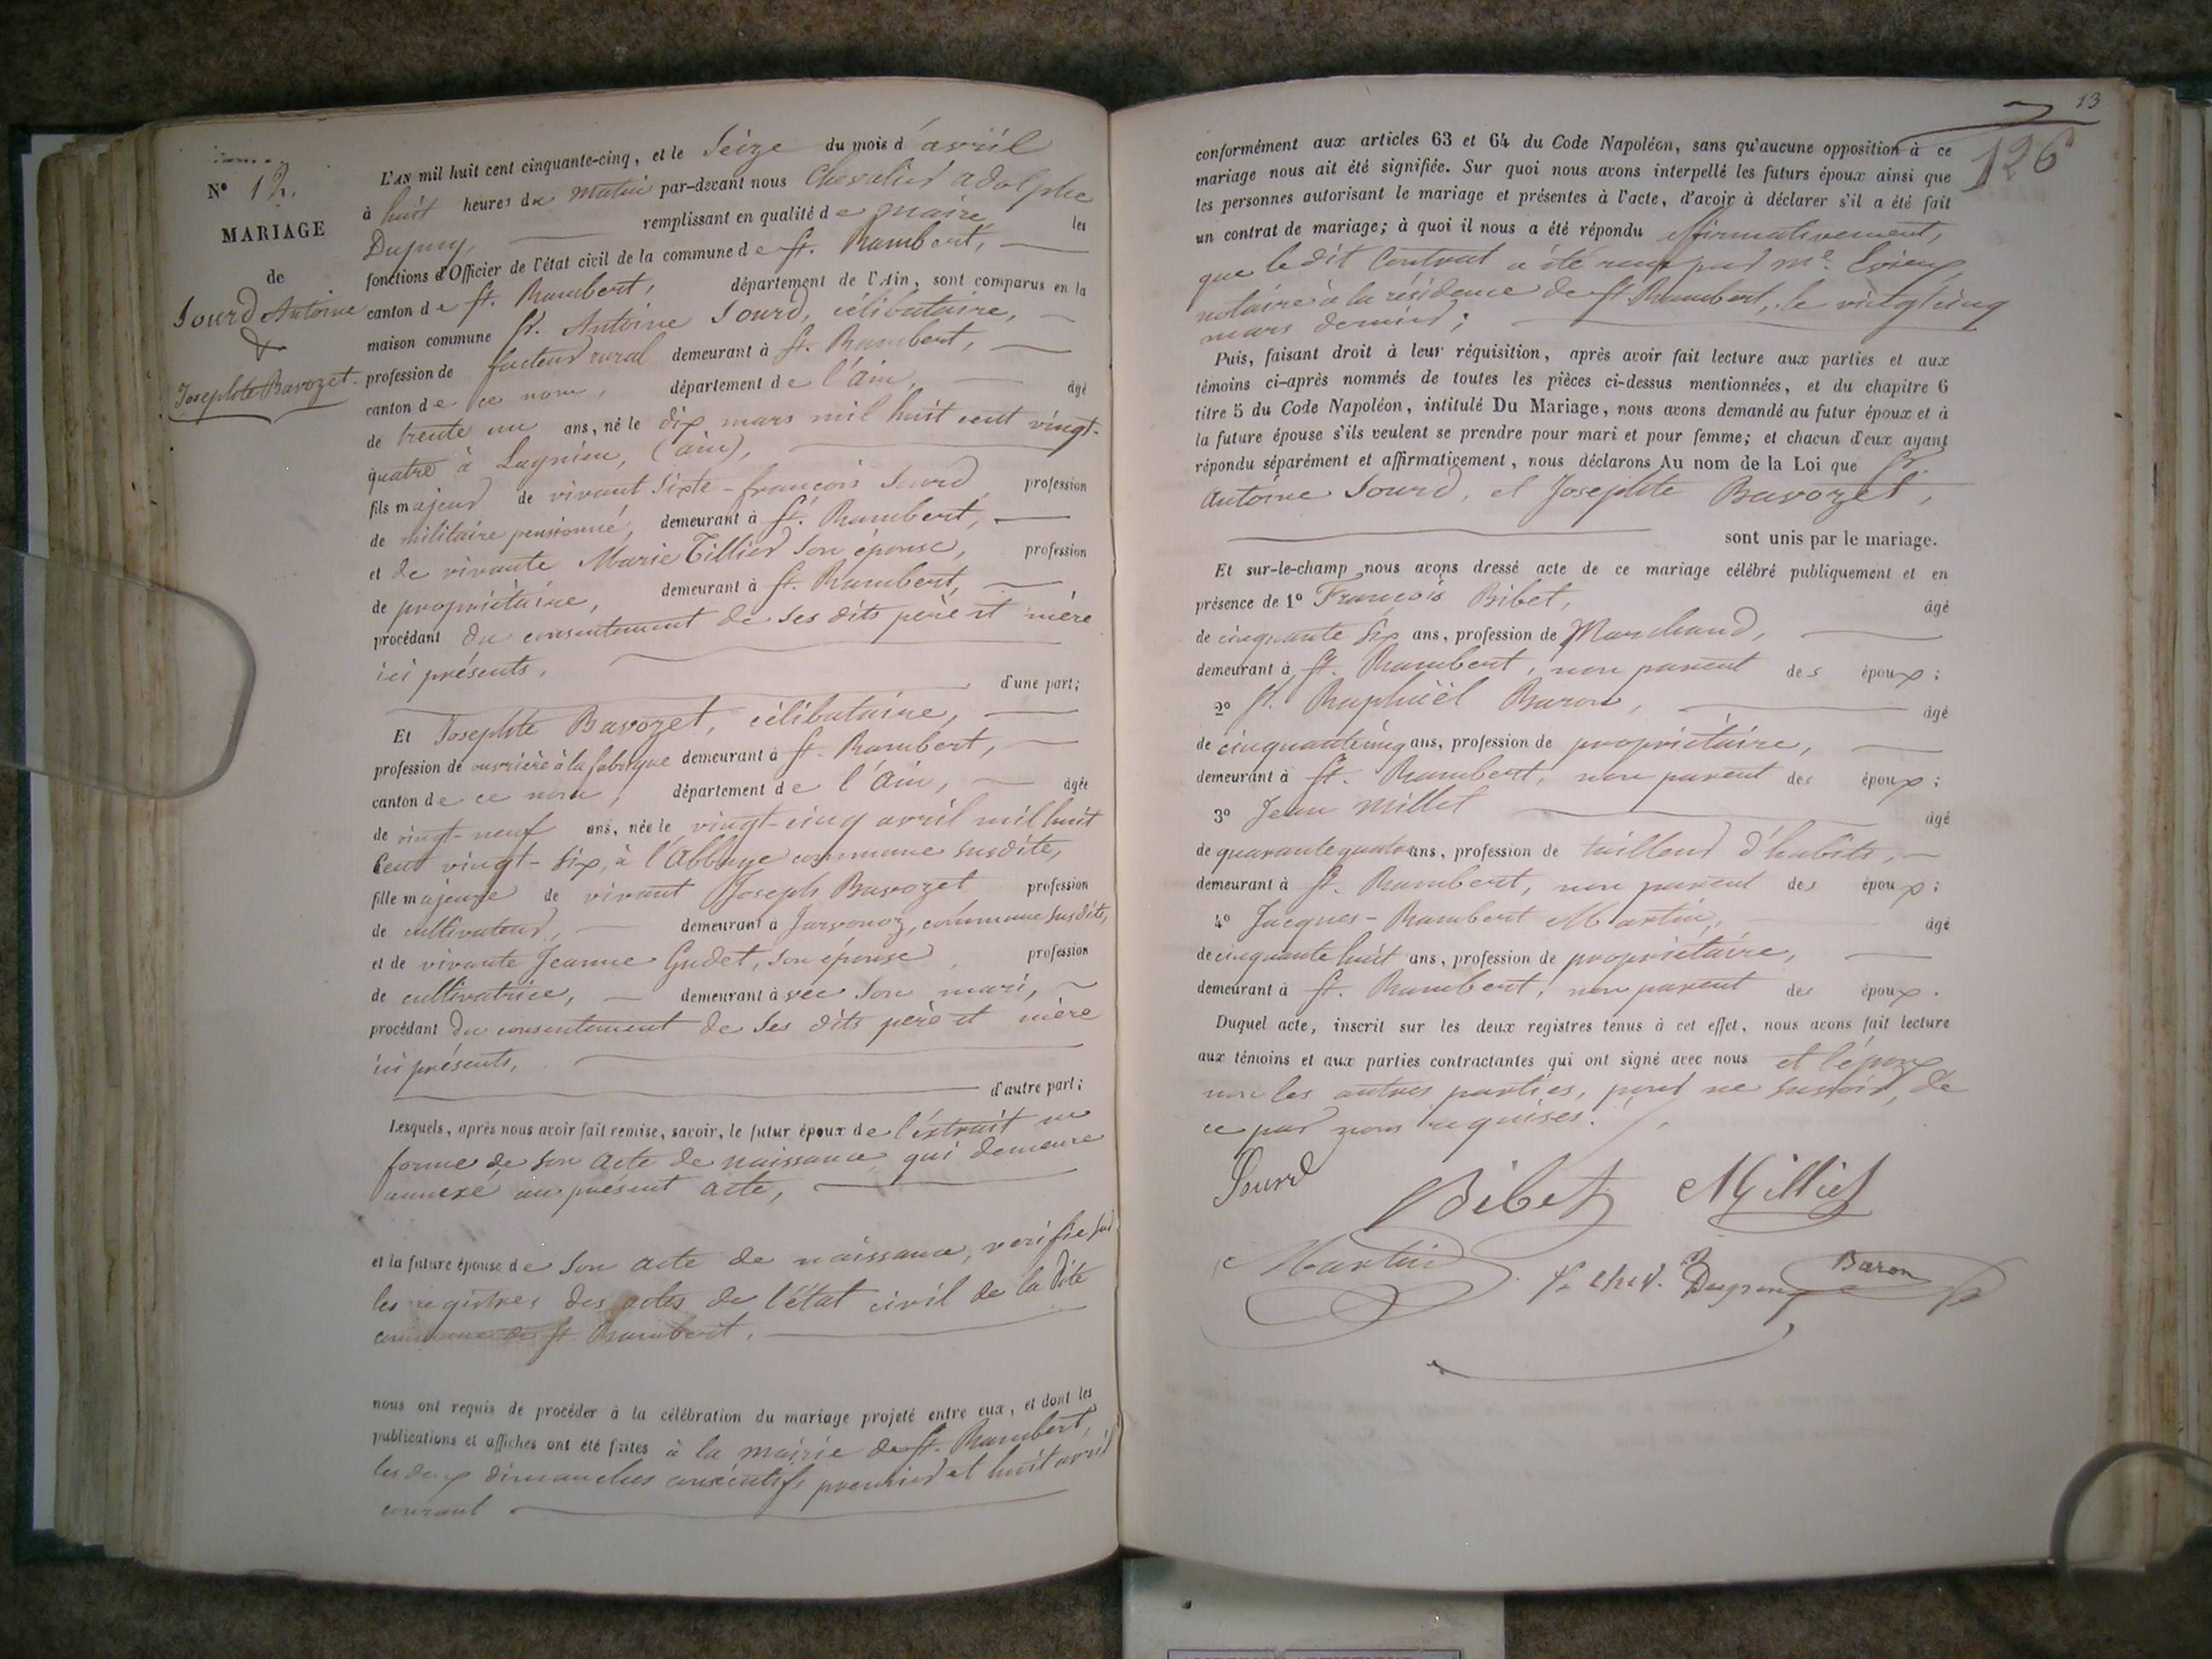 N° 12.
MARIAGE
de
Sourd Antoine
&
Josephte Bavozet.
L'AN mil huit cent cinquante-cinq, et le Seize du mois d'avril
à huit heures du matin par-devant nous Chevalier adolphe
Dupuy, remplissant en qualité de maire les
fonctions d'Officier de l'état civil de la commune de St. Rambert,
canton de St. Rambert, département de l'Ain, sont comparus en la
maison commune Sr. Antoine Sourd, célibataire,
profession de facteur rural demeurant à St. Rambert,
canton de ce nom, département de l'ain, âgé
de trente un ans, né le dix mars mil huit cent vingt-
quatre à Lagnieu, (ain),
fils majeur de vivant Sixte-françois Sourd profession
de militaire pensionné, demeurant à St. Rambert,
et de vivante Marie Tillier son épouse, profession
de propriétaire, demeurant à St. Rambert,
procédant du consentement de ses dits père et mère
ici présents,
d'une part;
Et Josephte Bavozet, célibataire,
profession de ouvrière à la fabrique demeurant à St. Rambert,
canton de ce nom, département de l'ain, âgée
de vingt-neuf ans, née le vingt-cinq avril mil huit
Cent vingt-six, à l'Abbaye commune susdite,
fille majeure de vivant Joseph Bavozet profession
de cultivateur, demeurant à Javornoz, commune susdite,
et de vivante Jeanne Gudet, son épouse, profession
de cultivatrice, demeurant avec son mari,
procédant du consentement de ses dits père et mère
ici présents,
d'autre part;
Lesquels, après nous avoir fait remise, savoir, le futur époux de l'extrait en
forme de son acte de naissance, qui demeure
annexé au présent acte,
et la future épouse de son acte de naissance, vérifié sur
les registres des actes de l'état civil de la dite
commune de St. Rambert,
nous ont requis de procéder à la célébration du mariage projeté entre eux, et dont les
publications et affiches ont été faites à la mairie de St. Rambert,
les deux dimanches consécutifs premier et huit avril
courant
13
126
conformément aux articles 63 et 64 du Code Napoléon, sans qu'aucune opposition à ce
mariage nous ait été signifiée. Sur quoi nous avons interpellé les futurs époux ainsi que
les personnes autorisant le mariage et présentes à l'acte, d'avoir à déclarer s'il a été fait
un contrat de mariage; à quoi il nous a été répondu affirmativement,
que le dit Contrat a été reçu par Me.
notaire à la résidence de St. Rambert, le vingt cinq
mars dernier;
Puis, faisant droit à leur réquisition, après avoir fait lecture aux parties et aux
témoins ci-après nommés de toutes les pièces ci-dessus mentionnées, et du chapitre 6
titre 5 du Code Napoléon, intitulé Du Mariage, nous avons demandé au futur époux et à
la future épouse s'ils veulent se prendre pour mari et pour femme; et chacun d'eux ayant
répondu séparément et affirmativement, nous déclarons Au nom de la Loi que Sr.
Antoine Sourd, et Josephte Bavozet,
sont unis par le mariage.
Et sur-le-champ nous avons dressé acte de ce mariage célébré publiquement et en
présence de 1° François Bibet, âgé
de cinquante six ans, profession de Marchand,
demeurant à St. Rambert, non parent des époux;
2° Sr. Raphaël Baron, âgé
de cinquante cinq ans, profession de propriétaire,
demeurant à St. Rambert, non parent des époux;
3° Jean Millet âgé
de quarante quatre ans, profession de tailleur d'habits,
demeurant à St. Rambert, non parent des époux;
4° Jacques-Rambert Martin, âgé
de cinquante huit ans, profession de propriétaire,
demeurant à St. Rambert, non parent des époux.
Duquel acte, inscrit sur les deux registres tenus à cet effet, nous avons fait lecture
aux témoins et aux parties contractantes qui ont signé avec nous et l'époux
non les autres parties, pour ne savoir, de
ce par nous requises.
Sourd Bibet Milliet
Martin Chev. Dupuy Baron